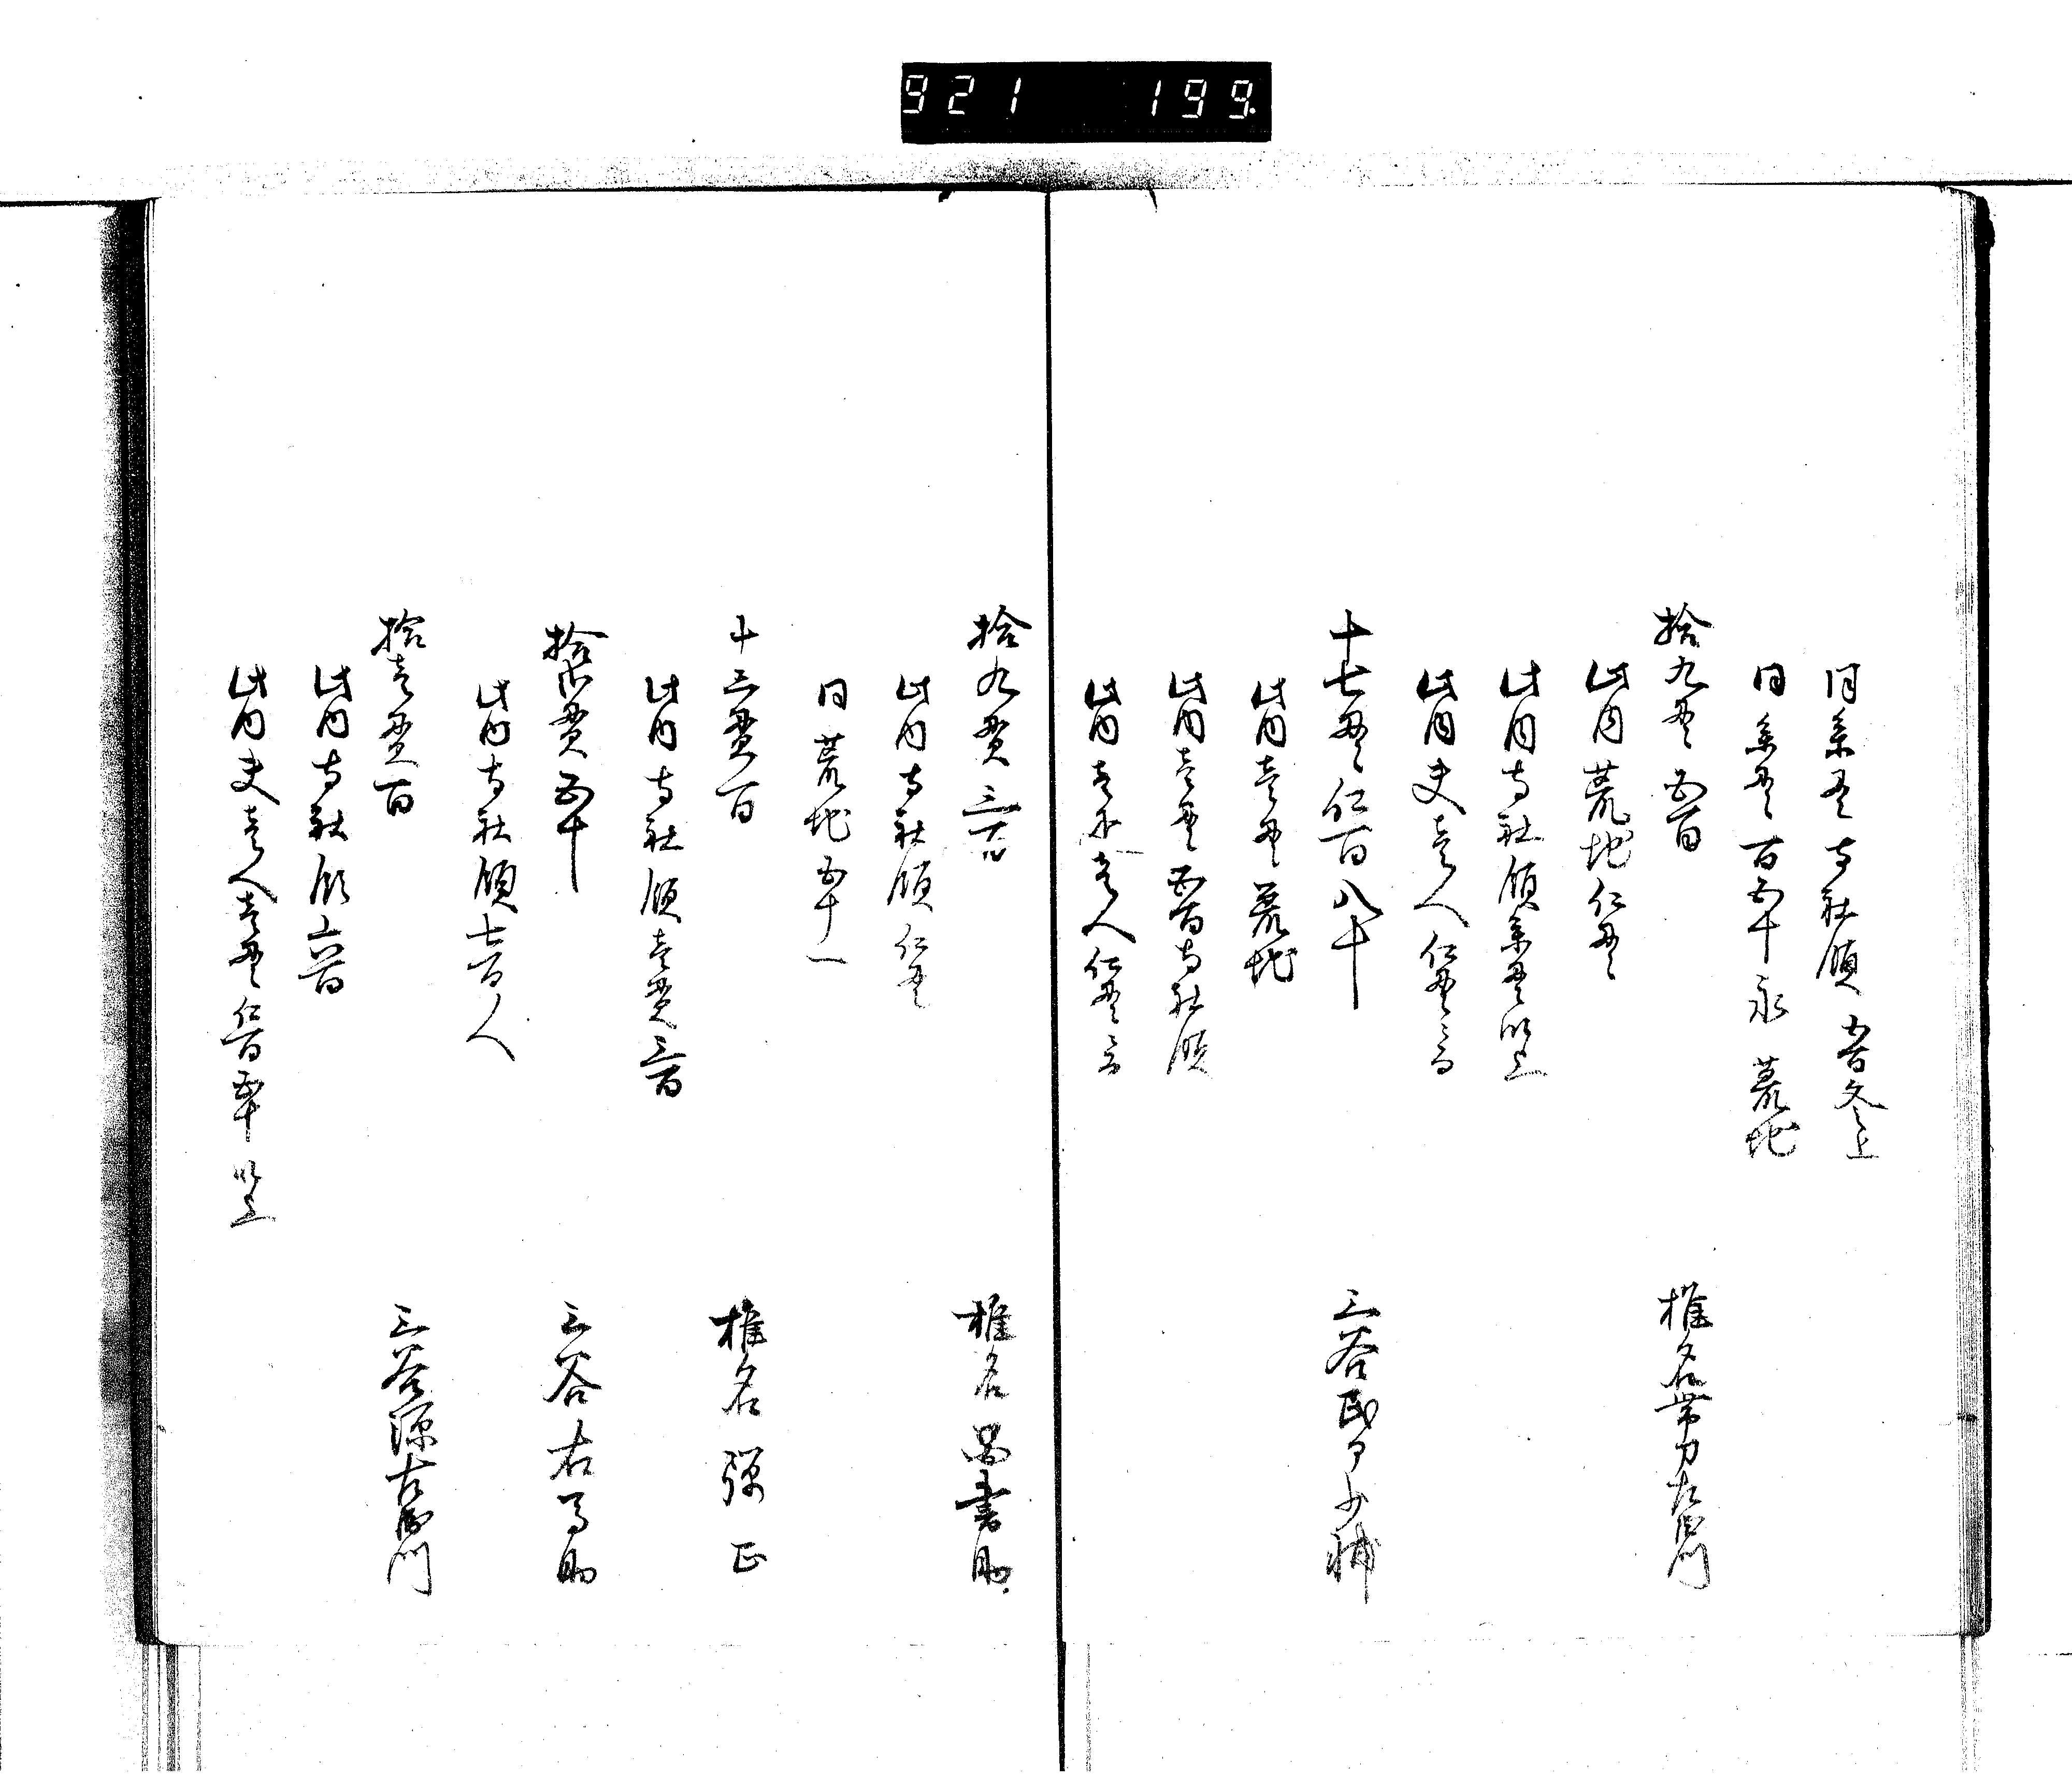 921 199
同参貫寺社領
同参貫百五十永荒地
拾九貫五百 椎名帯刀左衛門
此内荒地仁貫
此内寺社領参貫以上
此内夫壱人仁貫三百
十七貫仁百八十 三谷民部少輔
此内壱貫荒地
此内壱貫五百寺社領
此内夫壱人仁貫三百
拾九貫三百 椎名図書助
此内寺社領仁貫
同荒地五十
十三貫百 椎名弾正
此内寺社領壱貫三百
拾貫五十 三谷右馬助
此内寺社領七百
拾壱貫百 三谷源左衛門
此内寺社領六百
此内夫壱人壱貫仁百五十以上